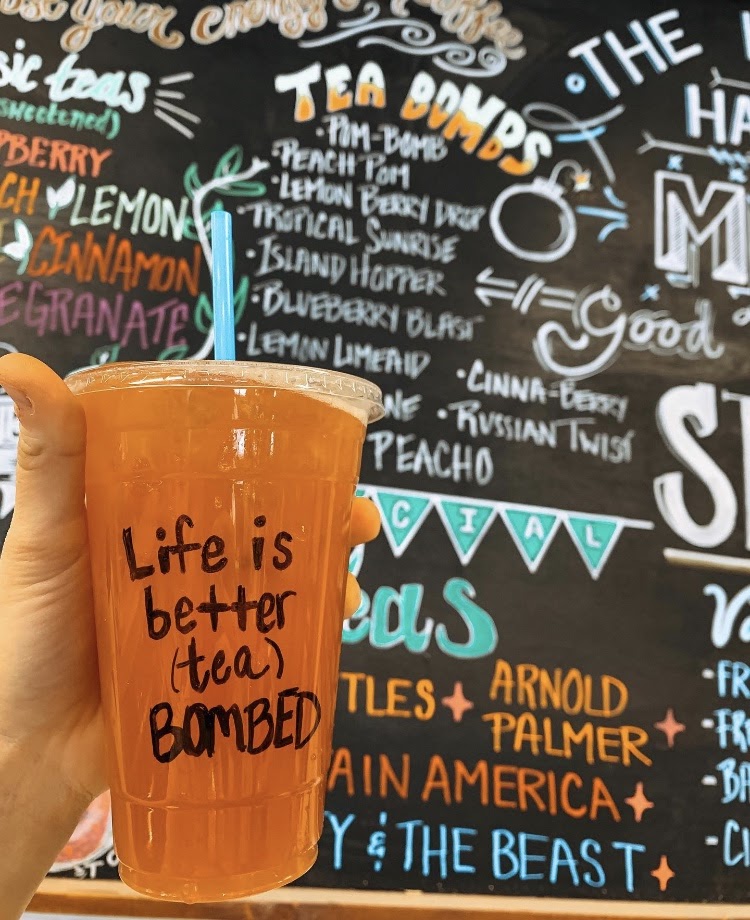 your energy
coffee
teas
(sweetened)
LEMON
CINNAMON
TEA BOMBS
• POM-BOMB
• PEACH POM
• LEMON BERRY DROP
• TROPICAL SUNRISE
• ISLAND HOPPER
• BLUEBERRY BLAST
• LEMON LIMEAID
• CINNA-BERRY
• RUSSIAN TWIST
PEACHO
CIAL
eas
TLES
ARNOLD
PALMER
AIN AMERICA
Y & THE BEAST
THE
HA
M
Good
S
- FR
- FR
- BA
- CI
Life is
better
(tea)
BOMBED